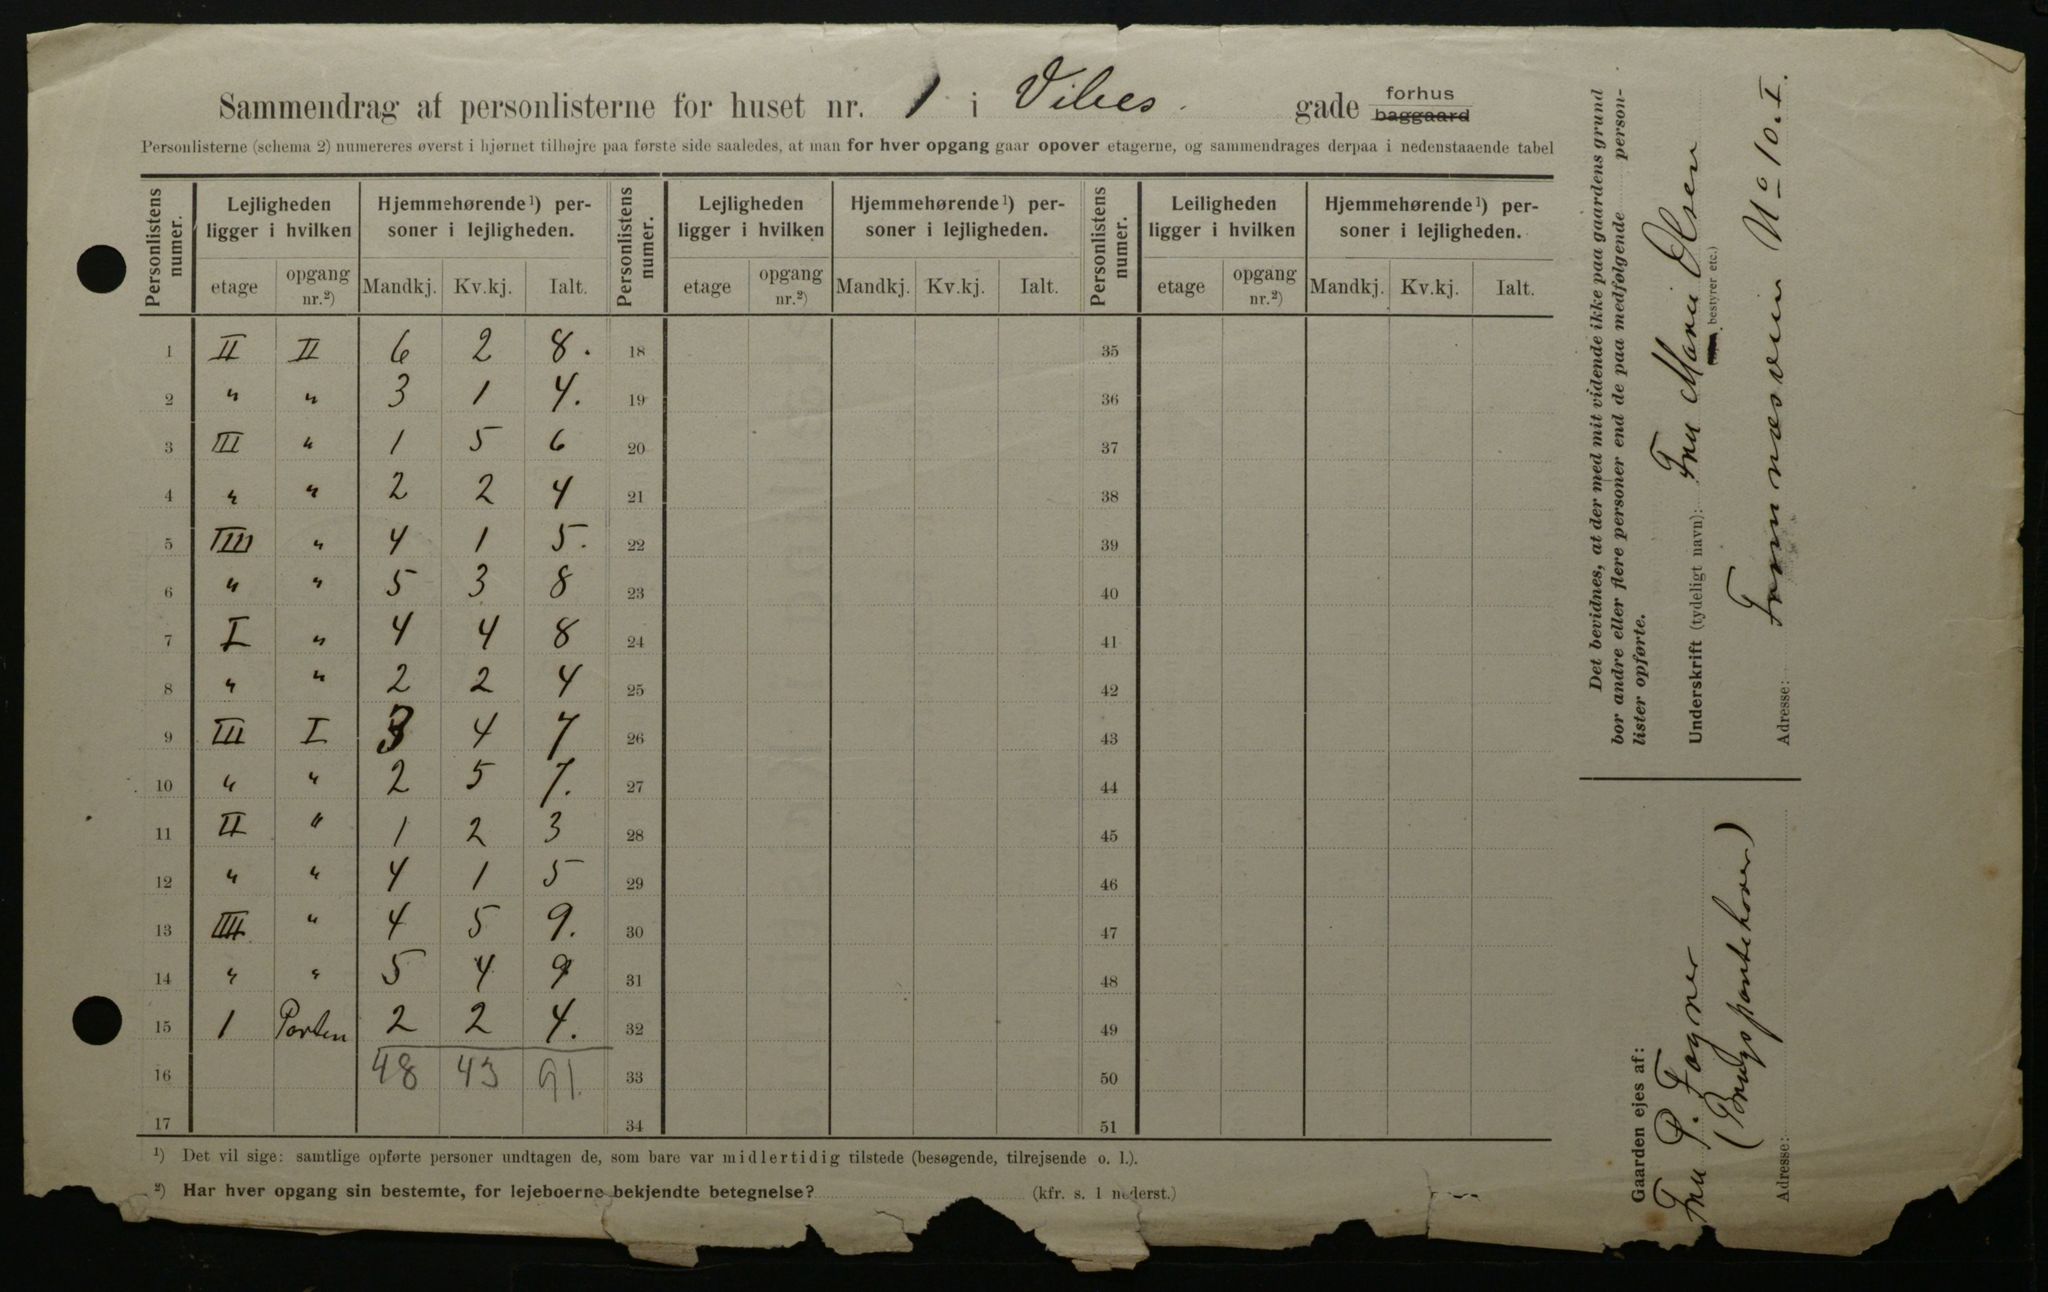 Sammendrag af personlisterne for huset nr. 1 i Vibes gade forhus baggaard
Personlisterne (schema 2) numereres øverst i hjørnet tilhøjre paa første side saaledes, at man for hver opgang gaar opover etagerne, og sammendrages derpaa i nedenstaaende tabel
Personlistens numer. Lejligheden ligger i hvilken Hjemmehørende¹) personer i lejligheden. Personlistens numer. Lejligheden ligger i hvilken Hjemmehørende¹) personer i lejligheden. Personlistens numer. Leiligheden ligger i hvilken Hjemmehørende¹) personer i lejligheden.
etage opgang nr.²) Mandkj. Kv.kj. Ialt. etage opgang nr.²) Mandkj. Kv.kj. Ialt. etage opgang nr.²) Mandkj. Kv.kj. Ialt.
1 II II 6 2 8. 18 35
2 " " 3 1 4. 19 36
3 III " 1 5 6 20 37
4 " " 2 2 4 21 38
5 IIII " 4 1 5. 22 39
6 " " 5 3 8 23 40
7 I " 4 4 8 24 41
8 " " 2 2 4 25 42
9 III I 3 4 7 26 43
10 " " 2 5 7. 27 44
11 II " 1 2 3 28 45
12 " " 4 1 5 29 46
13 IIII " 4 5 9. 30 47
14 " " 5 4 9 31 48
15 1 Porten 2 2 4. 32 49
16 48 43 91. 33 50
17 34 51
¹) Det vil sige: samtlige opførte personer undtagen de, som bare var midlertidig tilstede (besøgende, tilrejsende o. l.).
²) Har hver opgang sin bestemte, for lejeboerne bekjendte betegnelse? (kfr. s. 1 nederst.)
Det bevidnes, at der med mit vidende ikke paa gaardens grund
bor andre eller flere personer end de paa medfølgende person-
lister opførte.
Underskrift (tydeligt navn): Fru Marie Olsen
bestyrer etc.)
Adresse: Framnæsvein No 10. I.
Gaarden ejes af:
Fru P. Fagner
(Brugspantehaver)
Adresse: